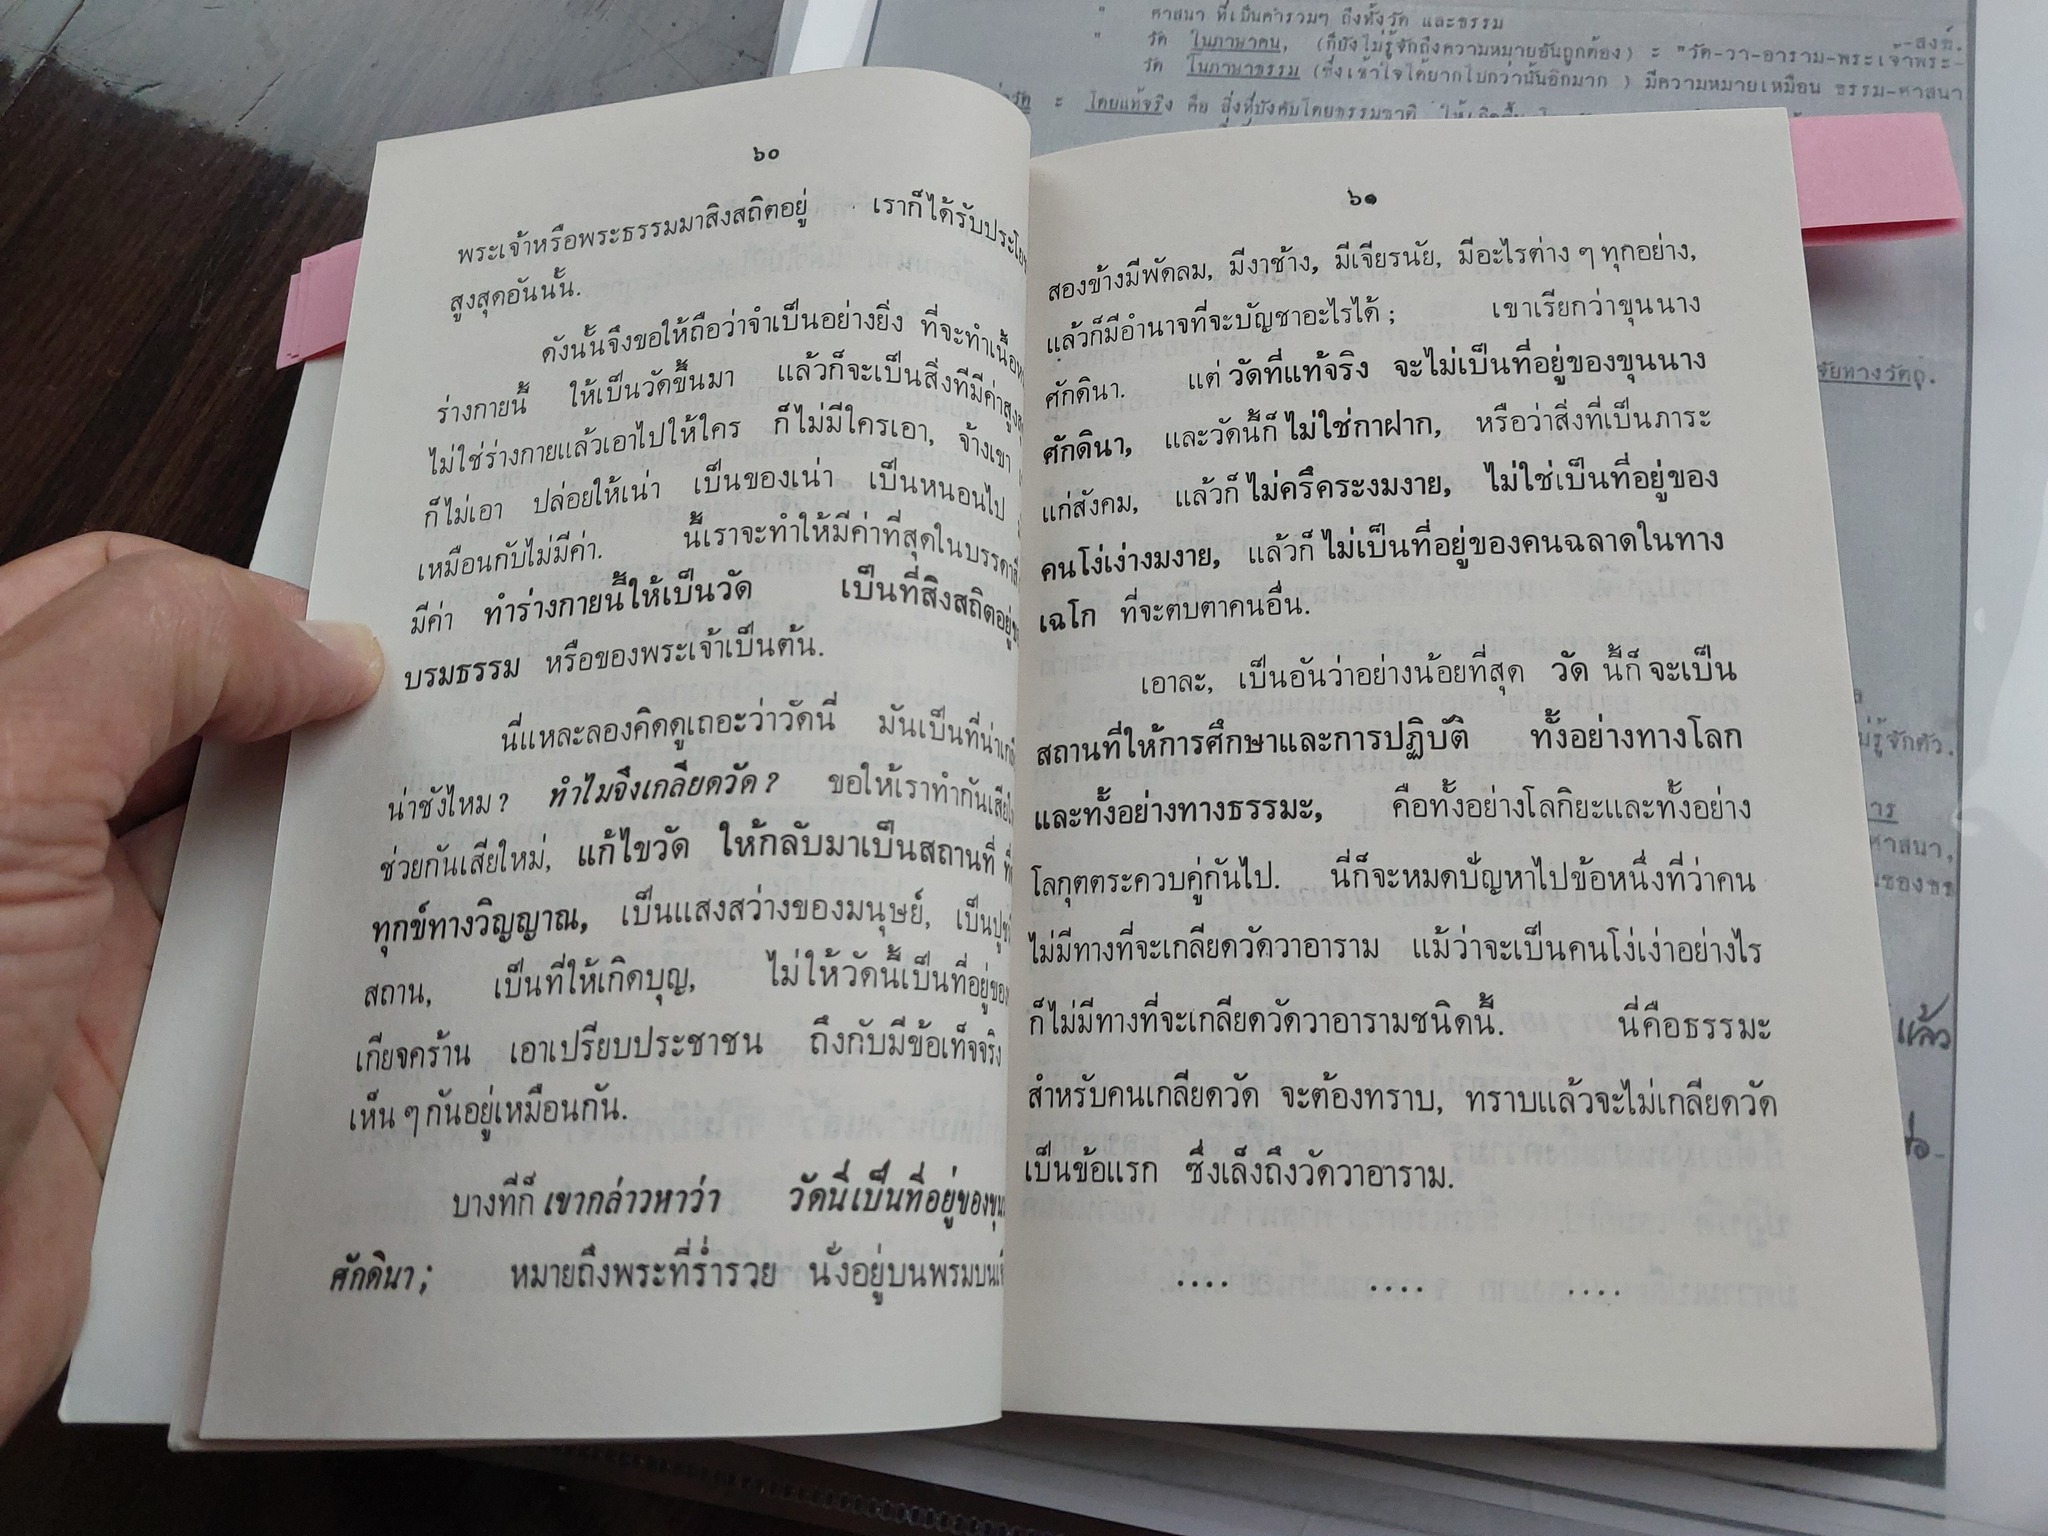 " ศาสนา ที่เป็นคำรวมๆ ถึงทั้งวัด และธรรม
-สงฆ์.
" วัด ในภาษาคน, (ก็ยังไม่รู้จักถึงความหมายอันถูกต้อง) = "วัด-วา-อาราม-พระเจ้าพระ-
วัด ในภาษาธรรม (ซึ่งเข้าใจได้ยากไปกว่านั้นอีกมาก ) มีความหมายเหมือน ธรรม-ศาสนา
= โดยแท้จริง คือ สิ่งที่บังคับโดยธรรมชาติ ให้เกิดขึ้น
๖๐
พระเจ้าหรือพระธรรมมาสิงสถิตอยู่ เราก็ได้รับ
สูงสุดอันนั้น.
ดังนั้นจึงขอให้ถือว่าจำเป็นอย่างยิ่ง ที่จะทำ
ร่างกายนี้ ให้เป็นวัดขึ้นมา แล้วก็จะเป็นสิ่งที่มีค่า
ไม่ใช่ร่างกายแล้วเอาไปให้ใคร ก็ไม่มีใครเอา, จ้างเขา
ก็ไม่เอา ปล่อยให้เน่า เป็นของเน่า เป็นหนอนไป
เหมือนกับไม่มีค่า. นี้เราจะทำให้มีค่าที่สุดใน
มีค่า ทำร่างกายนี้ให้เป็นวัด เป็นที่สิงสถิตอยู่
บรมธรรม หรือของพระเจ้าเป็นต้น.
นี่แหละลองคิดดูเถอะว่าวัดนี่ มันเป็นที่
น่าชังไหม? ทำไมจึงเกลียดวัด? ขอให้เราทำกันเสีย
ช่วยกันเสียใหม่, แก้ไขวัด ให้กลับมาเป็นสถานที่
ทุกข์ทางวิญญาณ, เป็นแสงสว่างของมนุษย์,
สถาน, เป็นที่ให้เกิดบุญ, ไม่ให้วัดนี้เป็นที่อยู่
เกียจคร้าน เอาเปรียบประชาชน ถึงกับมีข้อเท็จจริง
เห็น ๆ กันอยู่เหมือนกัน.
บางทีก็ เขากล่าวหาว่า วัดนี่เป็นที่อยู่ของ
ศักดินา; หมายถึงพระที่ร่ำรวย นั่งอยู่บนพรม
๖๑
สองข้างมีพัดลม, มีงาช้าง, มีเจียรนัย, มีอะไรต่าง ๆ ทุกอย่าง,
แล้วก็มีอำนาจที่จะบัญชาอะไรได้; เขาเรียกว่าขุนนาง
ศักดินา. แต่ วัดที่แท้จริง จะไม่เป็นที่อยู่ของขุนนาง
ศักดินา, และวัดนี้ก็ ไม่ใช่กาฝาก, หรือว่าสิ่งที่เป็นภาระ
แก่สังคม, แล้วก็ ไม่ครึคระงมงาย, ไม่ใช่เป็นที่อยู่ของ
คนโง่เง่างมงาย, แล้วก็ ไม่เป็นที่อยู่ของคนฉลาดในทาง
เฉโก ที่จะตบตาคนอื่น.
เอาละ, เป็นอันว่าอย่างน้อยที่สุด วัด นี้ก็ จะเป็น
สถานที่ให้การศึกษาและการปฏิบัติ ทั้งอย่างทางโลก
และทั้งอย่างทางธรรมะ, คือทั้งอย่างโลกิยะและทั้งอย่าง
โลกุตตระควบคู่กันไป. นี่ก็จะหมดปัญหาไปข้อหนึ่งที่ว่าคน
ไม่มีทางที่จะเกลียดวัดวาอาราม แม้ว่าจะเป็นคนโง่เง่าอย่างไร
ก็ไม่มีทางที่จะเกลียดวัดวาอารามชนิดนี้. นี่คือธรรมะ
สำหรับคนเกลียดวัด จะต้องทราบ, ทราบแล้วจะไม่เกลียดวัด
เป็นข้อแรก ซึ่งเล็งถึงวัดวาอาราม.
.... .... ....
ทางวัตถุ.
ไม่รู้จักตัว.
การ
ศาสนา,
แล้ว